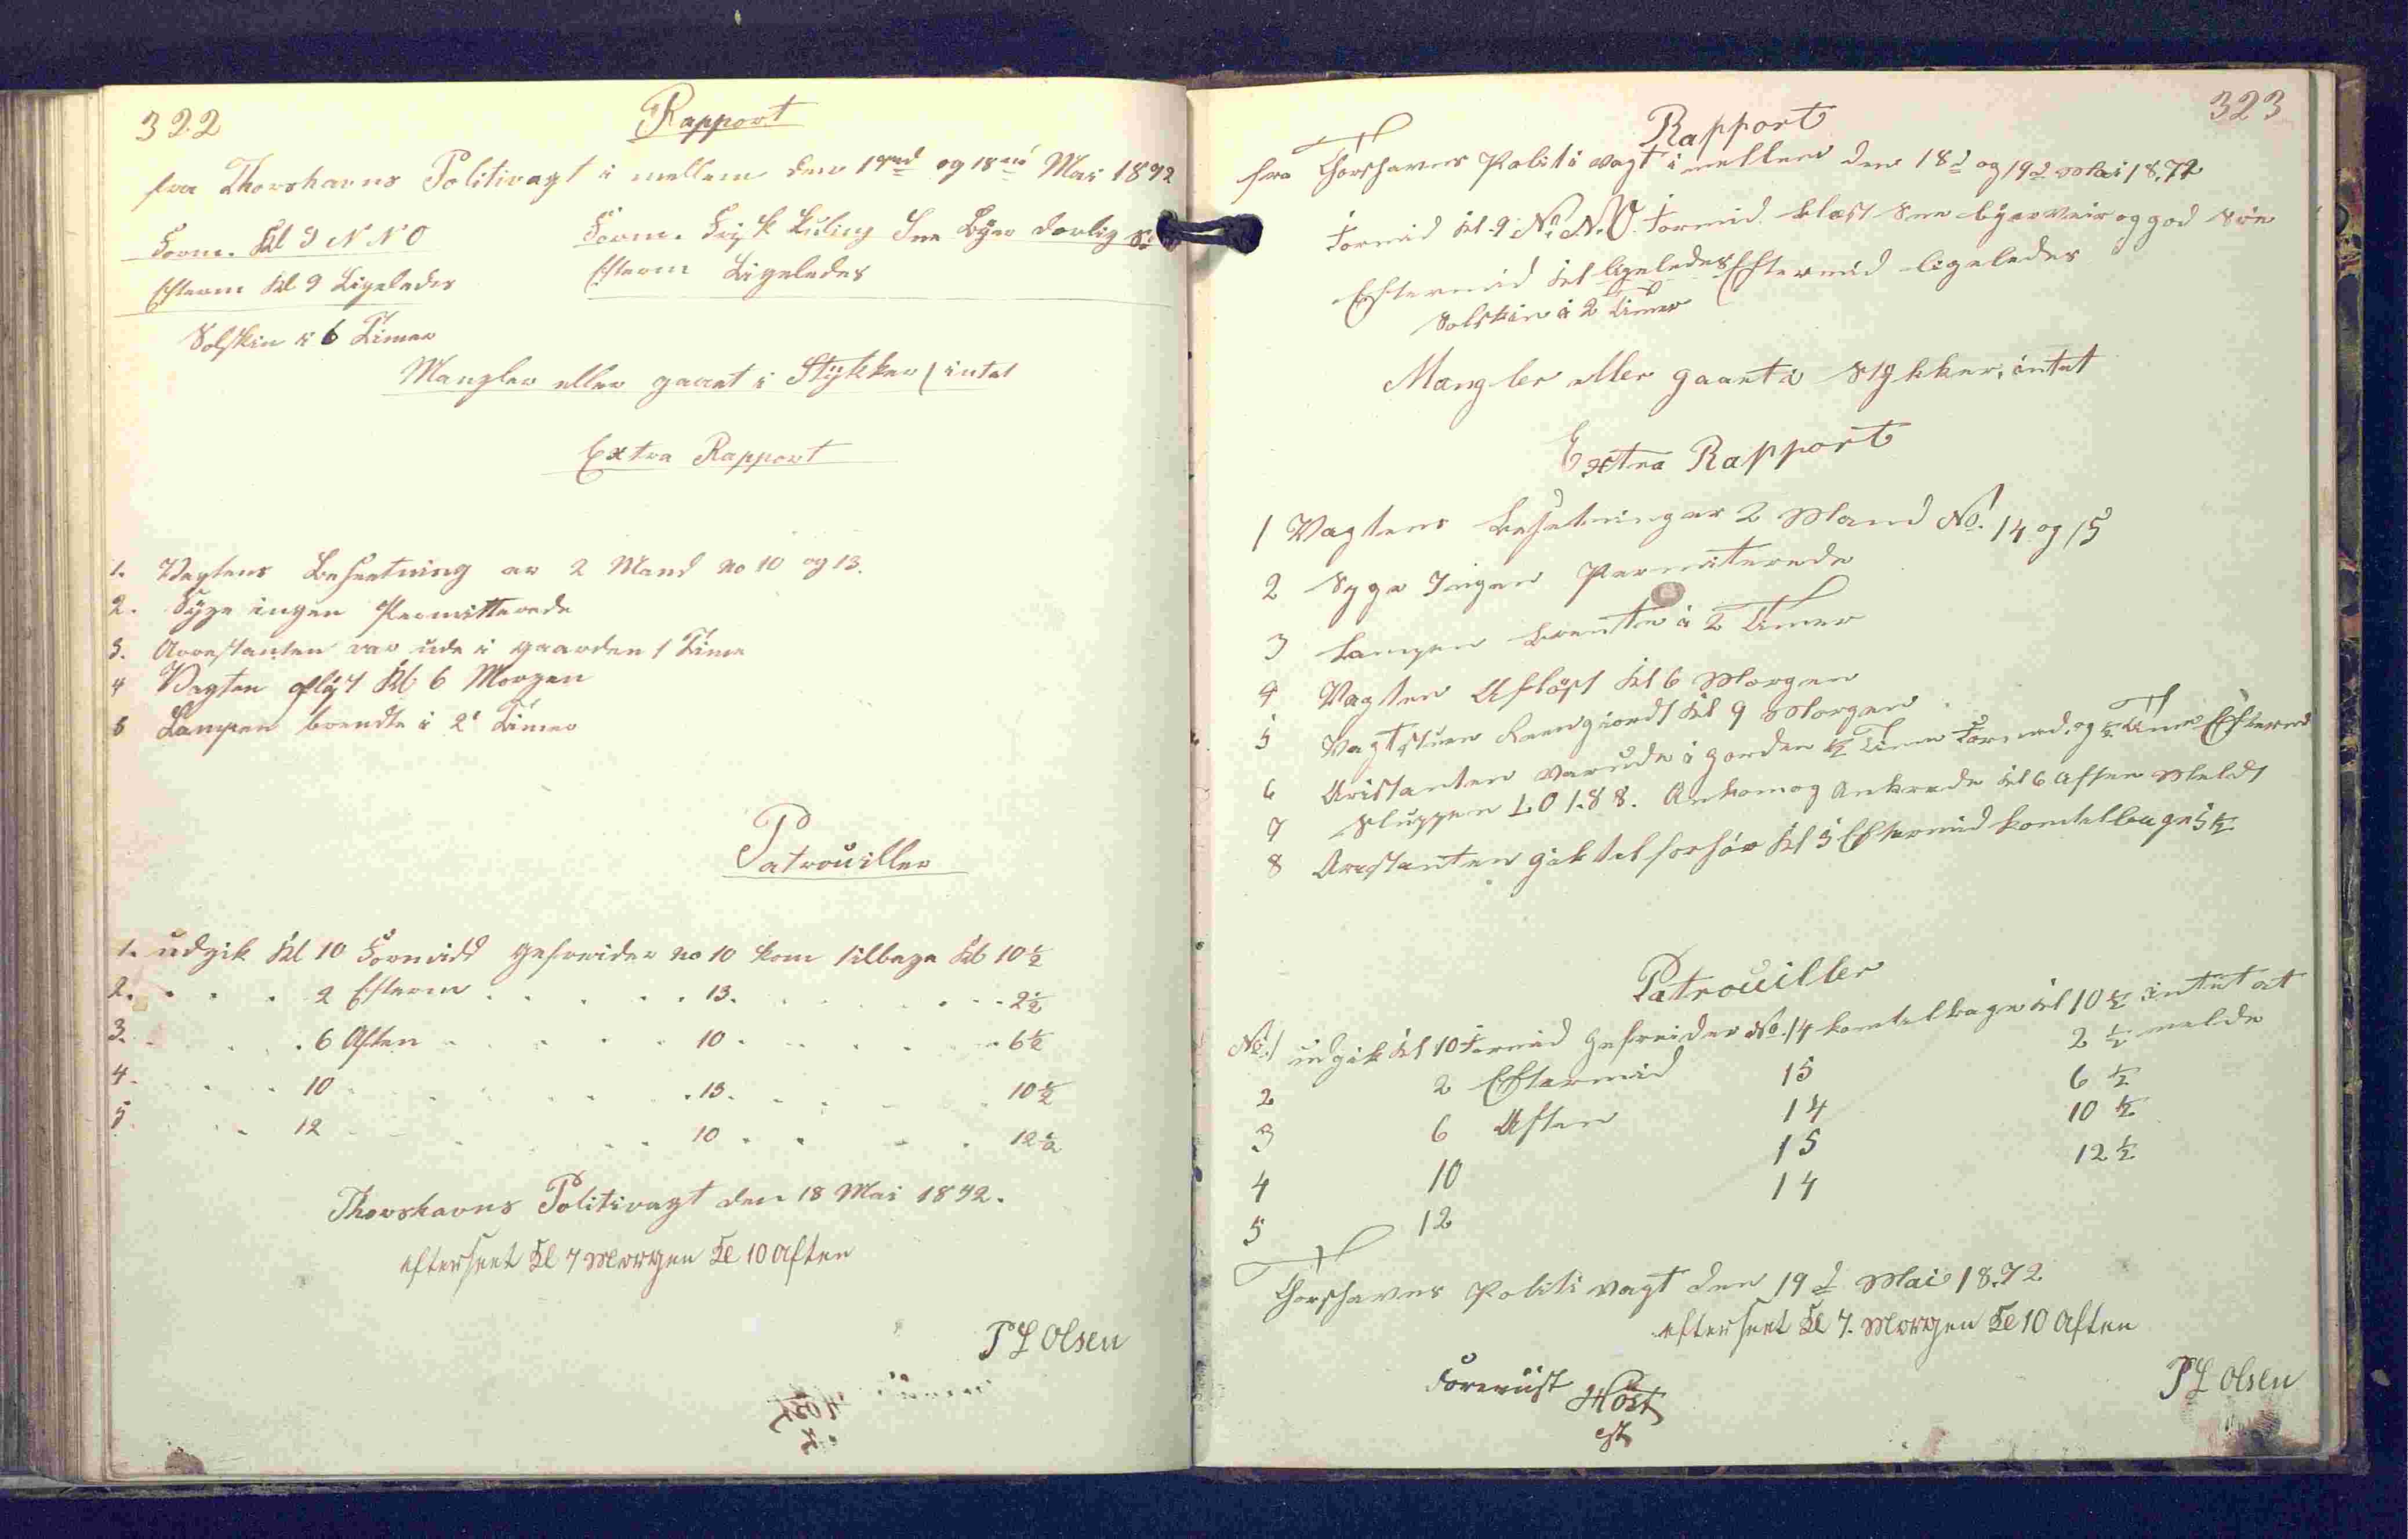 322
Rapport
fra Thorshavns Politivagt i mellem den 17nd og 18nd Mai 1872
Form. Kl 9 N N O Form. Frisk Kuling Sne Byer daarlig
Efterm Kl 9 Ligeledes Efterm Ligeledes
Solskin i 6 Timer
Mangler eller gaaet i Stykker / intet
Extra Rapport
1. Vagtens Besætning av 2 Mand no 10 og 13.
2. Syge ingen Permitterede
3. Arrestanten var ude i gaarden 1 Time
4 Vagten afløst Kl 6 Morgen
5 Lampen brendte i 2 Timer
Patrouiller
1. udgik Kl 10 Formidd gefreider no 10 kom tilbage Kl 10½
2. 2 Efterm 13. 2½
3. 6 Aften 10 6½
4. 10 13. 10½
5 12 10 12½
Thorshavns Politivagt den 18 Mai 1872.
efterseet Kl 7 Morgen Kl 10 Aften
P L Olsen
323
Rapport
fra Thorshavns Politi vagt i mellem den 18d og 19d Mai 1872
Formid Kl. 9 N. N. O. Formid blæst Sne byer Veir og god Søe
Eftermid Kl ligeledes Eftermid ligeledes
Solskin i 2 Timer
Mangler eller gaaet i Stykker, intet
Extra Rapport
1 Vagtens Besetning er 2 Mand No. 14 og 15
2 Syge Ingen Permiterede
3 Lampen brente i 2 Timer
4 Vagten Afløst Kl 6 Morgen
5 Vagtstuen Reengiordt Kl 9 Morgen
6 Aristanten var ude i gorden ½ Time Formid. og ½ Time Eftermid
7 Sluppen L O 188. Ankom og Ankrede Kl 6 Aften Meldt
8 Arestanten gik tel forhør Kl 5 Eftermid kom telbage 5½
Patrouiller
No. 1 udgik Kl 10 Formid Gefreider No. 14 kom telbage Kl 10½ intet at
2 2 Eftermid 15 2½ melde
3 6 Aften 14 6½
4 10 15 10½
5 12 14 12½
Thorshavns Politi vagt den 19d Mai 1872
efterseet Kl 7. Morgen Kl 10 Aften
Foreviist Høst
P L Olsen